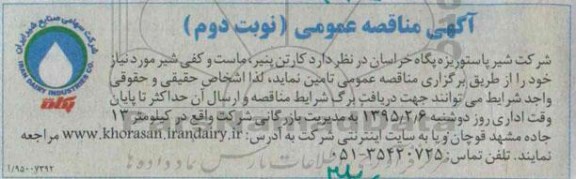 آگهی مناقصه عمومی (نوبت دوم)
شرکت شیر پاستوریزه پگاه خراسان در نظر دارد کارتن پنیر، ماست و کفی شیر مورد نیاز
خود را از طریق برگزاری مناقصه عمومی تامین نماید، لذا اشخاص حقیقی و حقوقی
واجد شرایط می توانند جهت دریافت برگ شرایط مناقصه و ارسال آن حداکثر تا پایان
وقت اداری روز دوشنبه ۱۳۹۵/۲/۶ به مدیریت بازرگانی شرکت واقع در کیلومتر ۱۳
جاده مشهد قوچان و یا به سایت اینترنتی شرکت به آدرس: www.khorasan.irandairy.ir مراجعه
نمایند. تلفن تماس: ۳۵۴۲۰۷۲۵-۰۵۱
شرکت سهامی صنایع شیر ایران
IRAN DAIRY INDUSTRIES CO.
پگاه
۱/۹۵۰۰۷۳۹۲